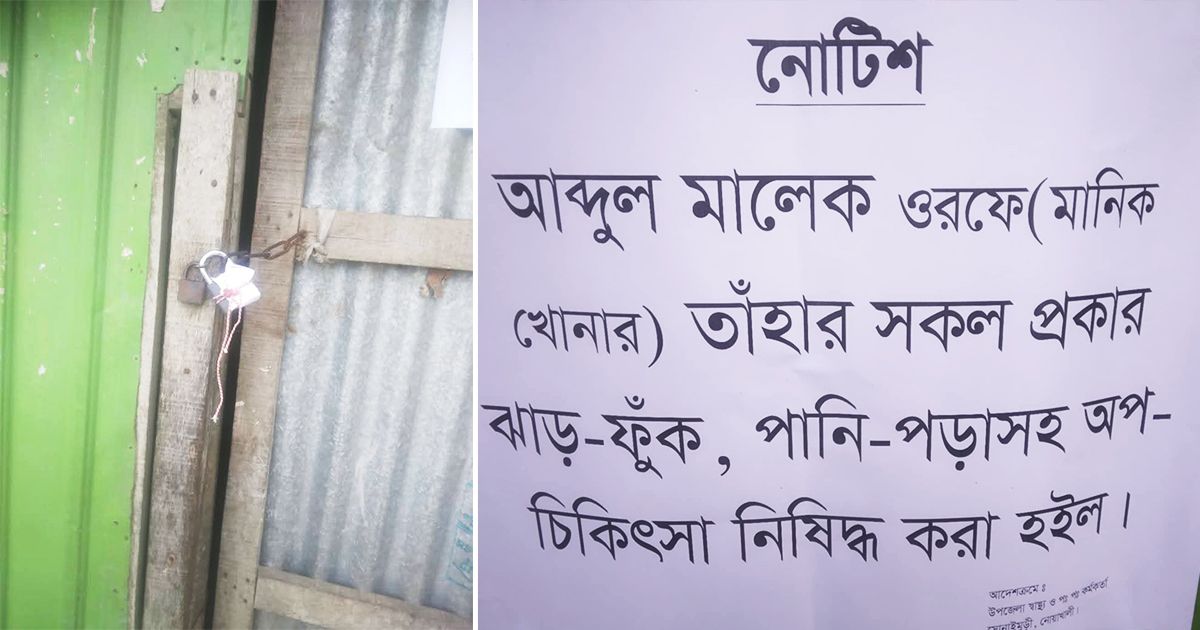 নোটিশ
আব্দুল মালেক ওরফে(মানিক
খোনার) তাঁহার সকল প্রকার
ঝাড়-ফুঁক, পানি-পড়াসহ অপ-
চিকিৎসা নিষিদ্ধ করা হইল।
আদেশক্রমে ঃ
উপজেলা স্বাস্থ্য ও পঃ পঃ কর্মকর্তা
সোনাইমুড়ী, নোয়াখালী।